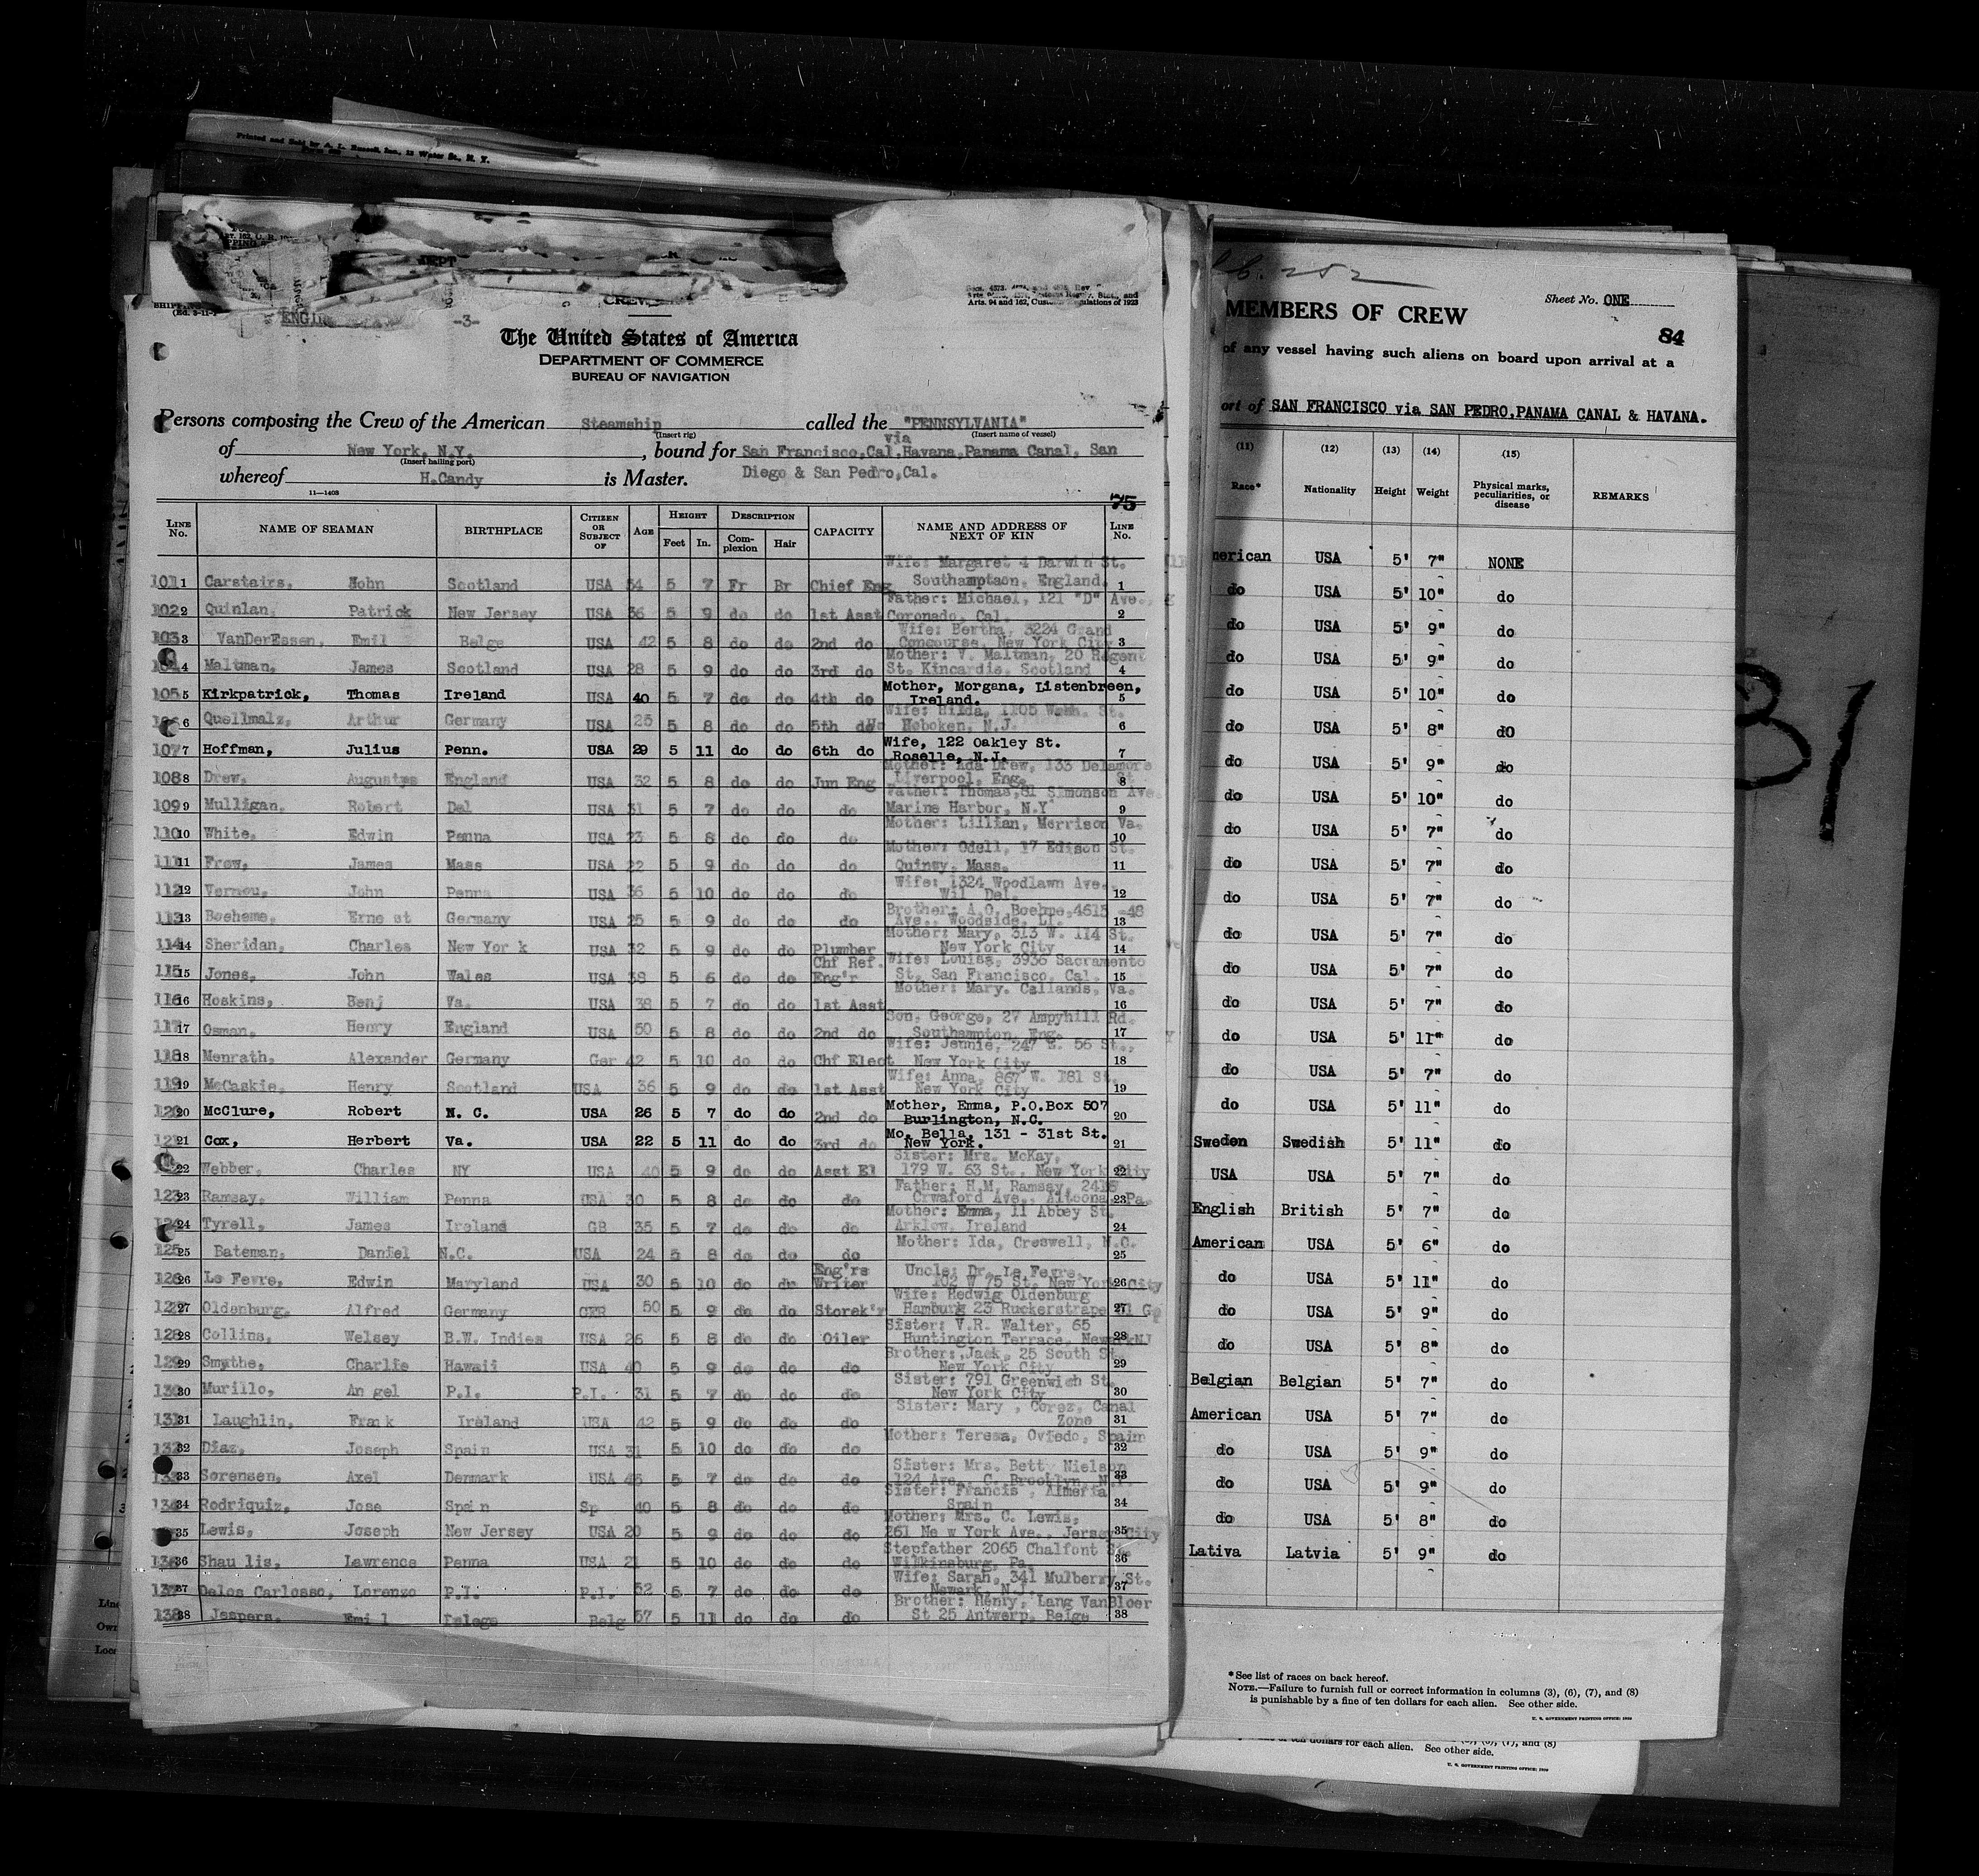 Printed and Sold by A. L. Russell, Inc., 12 Water St., N. Y.
CREW
-3-
Arts. 94 and 162, Customs Regulations of 1923
The United States of America
DEPARTMENT OF COMMERCE
BUREAU OF NAVIGATION
Persons composing the Crew of the American Steamship called the "PENNSYLVANIA"
(Insert rig) (Insert name of vessel)
via
of New York, N.Y., bound for San Francisco,Cal.Havana,Panama Canal, San
(Insert hailing port)
whereof H.Candy is Master. Diego & San Pedro,Cal.
11—1408
75
LINE No. NAME OF SEAMAN BIRTHPLACE CITIZEN OR SUBJECT OF AGE HEIGHT Feet In. DESCRIPTION Complexion Hair CAPACITY NAME AND ADDRESS OF NEXT OF KIN LINE No.
Wife: Margaret 4 Darwin St.
101 1 Carstairs, Nohn Scotland USA 54 5 7 Fr Br Chief Eng Southamptaon, England, 1
Father: Michael, 121 "D" Ave.,
102 2 Quinlan, Patrick New Jersey USA 36 5 9 do do 1st Asst Coronado, Cal. 2
Wife: Bertha, 3224 Grand
103 3 VanDerEssen, Emil Belge USA 42 5 8 do do 2nd do Concourse, New York City 3
Mother: V. Maltman, 20 Regent
4 Maltman, James Scotland USA 28 5 9 do do 3rd do St. Kincardis, Scotland 4
Mother, Morgana, Listenbreen,
105 5 Kirkpatrick, Thomas Ireland USA 40 5 7 do do 4th do Ireland. 5
Wife: Hilda, 1105 Wash. St.
6 Quellmalz, Arthur Germany USA 25 5 8 do do 5th do Hoboken, N.J. 6
Wife, 122 Oakley St.
107 7 Hoffman, Julius Penn. USA 29 5 11 do do 6th do Roselle, N.J. 7
Mother: Ada Drew, 133 Delamore
108 8 Drew, Augustus England USA 32 5 8 do do Jun Eng Liverpool, Eng. St. 8
Father: Thomas,81 Simonson Ave.
109 9 Mulligan, Robert Del USA 31 5 7 do do do Marine Harbor, N.Y 9
Mother: Lillian, Morrison Va.
110 10 White, Edwin Penna USA 23 5 8 do do do 10
Mother: Odell, 17 Edison St.
111 11 Frew, James Mass USA 22 5 9 do do do Quincy, Mass. 11
Wife: 1324 Woodlawn Ave.
112 12 Vernou, John Penna USA 36 5 10 do do do Wil Del. 12
Brother: A.O. Boehme,4615 -48
113 13 Boeheme, Erne st Germany USA 25 5 9 do do do Ave., Woodside, LI. 13
Mother: Mary, 313 W. 114 St.
114 14 Sheridan, Charles New Yor k USA 32 5 9 do do Plumber New York City 14
Chf Ref. Wife: Louisa, 3936 Sacramento
115 15 Jones, John Wales USA 38 5 6 do do Eng'r St. San Francisco, Cal. 15
Mother: Mary. Callands, Va.
116 16 Hoskins, Benj Va. USA 38 5 7 do do 1st Asst 16
Son, George, 27 Ampyhill Rd.
117 17 Osman, Henry England USA 50 5 8 do do 2nd do Southampton, Eng. 17
Wife: Jennie, 247 E. 56 St.,
118 18 Menrath, Alexander Germany Ger 42 5 10 do do Chf Elect New York City 18
Wife: Anna, 867 W. 181 St.
119 19 McCaskie, Henry Scotland USA 36 5 9 do do 1st Asst New York City 19
Mother, Emma, P.O.Box 507
120 20 McClure, Robert N. C. USA 26 5 7 do do 2nd do Burlington, N.C. 20
Mo. Bella, 131 - 31st St.
121 21 Cox, Herbert Va. USA 22 5 11 do do 3rd do New York. 21
Sister: Mrs. McKay,
22 Webber, Charles NY USA 40 5 9 do do Asst El 179 W. 63 St., New York City 22
Father: H.M. Ramsay, 2415
123 23 Ramsay, William Penna USA 30 5 8 do do do Crwaford Ave., Altoona, Pa. 23
Mother: Emma, 11 Abbey St.
24 Tyrell, James Ireland GB 35 5 7 do do do Arklow, Ireland 24
Mother: Ida, Creswell, N.C.
125 25 Bateman, Daniel N.C. USA 24 5 8 do do do 25
Eng'rs Uncle: Dr. Le Fevre,
126 26 Le Fevre, Edwin Maryland USA 30 5 10 do do Writer 102 W 75 St. New York City 26
Wife: Hedwig Oldenburg
127 27 Oldenburg, Alfred Germany GER 50 5 9 do do Storek'r Hamburg 23 Ruckerstrape 27
Sister: V.R. Walter, 65
128 28 Collins, Welsey B.W. Indies USA 26 5 8 do do Oiler Huntington Terrace, Newark NJ 28
Brother: Jack, 25 South St.
129 29 Smythe, Charlie Hawaii USA 40 5 9 do do do New York City 29
Sister: 791 Greenwich St.
130 30 Murillo, An gel P.I. P.I. 31 5 7 do do do New York City 30
Sister: Mary , Corez, Canal
131 31 Laughlin, Frank Ireland USA 42 5 9 do do do Zone 31
Mother: Teresa, Oviedo, Spain
132 32 Diaz, Joseph Spain USA 31 5 10 do do do 32
Sister: Mrs. Bett Nielson
33 Sorensen, Axel Denmark USA 45 5 7 do do do 124 Ave., C. Brooklyn, N.Y. 33
Sister: Francis , Almeria
134 34 Rodriquiz, Jose Spain Sp 40 5 8 do do do Spain 34
Mother: Mrs. C. Lewis,
35 Lewis, Joseph New Jersey USA 20 5 9 do do do 261 Ne w York Ave., Jersey City 35
Stepfather 2065 Chalfont St.
136 36 Shau lis, Lawrence Penna USA 21 5 10 do do do Wilkinsburg, Pa. 36
Wife: Sarah, 341 Mulberry St.
137 37 Delos Carlosso, Lorenzo P.I. P.I. 52 5 7 do do do Newark, N.J. 37
Brother: Henry, Lang VanBloer
138 38 Jespers, Emi l Belege Belg 57 5 11 do do do St 25 Antwerp, Belge 38
252
Sheet No. ONE
MEMBERS OF CREW
84
of any vessel having such aliens on board upon arrival at a
ort of SAN FRANCISCO via SAN PEDRO,PANAMA CANAL & HAVANA.
(11) (12) (13) (14) (15)
Race* Nationality Height Weight Physical marks, peculiarities, or disease REMARKS
merican USA 5' 7" NONE
do USA 5' 10" do
do USA 5' 9" do
do USA 5' 9" do
do USA 5' 10" do
do USA 5' 8" dO
do USA 5' 9" do
do USA 5' 10" do
do USA 5' 7" do
do USA 5' 7" do
do USA 5' 7" do
do USA 5' 7" do
do USA 5' 7" do
do USA 5' 7" do
do USA 5' 11" do
do USA 5' 7" do
do USA 5' 11" do
Sweden Swedish 5' 11" do
USA USA 5' 7" do
English British 5' 7" do
American USA 5' 6" do
do USA 5' 11" do
do USA 5' 9" do
do USA 5' 8" do
Belgian Belgian 5' 7" do
American USA 5' 7" do
do USA 5' 9" do
do USA 5' 9" do
do USA 5' 8" do
Lativa Latvia 5' 9" do
*See list of races on back hereof.
NOTE.—Failure to furnish full or correct information in columns (3), (6), (7), and (8)
is punishable by a fine of ten dollars for each alien. See other side.
U. S. GOVERNMENT PRINTING OFFICE
of ten dollars for each alien. See other side.
U. S. GOVERNMENT PRINTING OFFICE
31